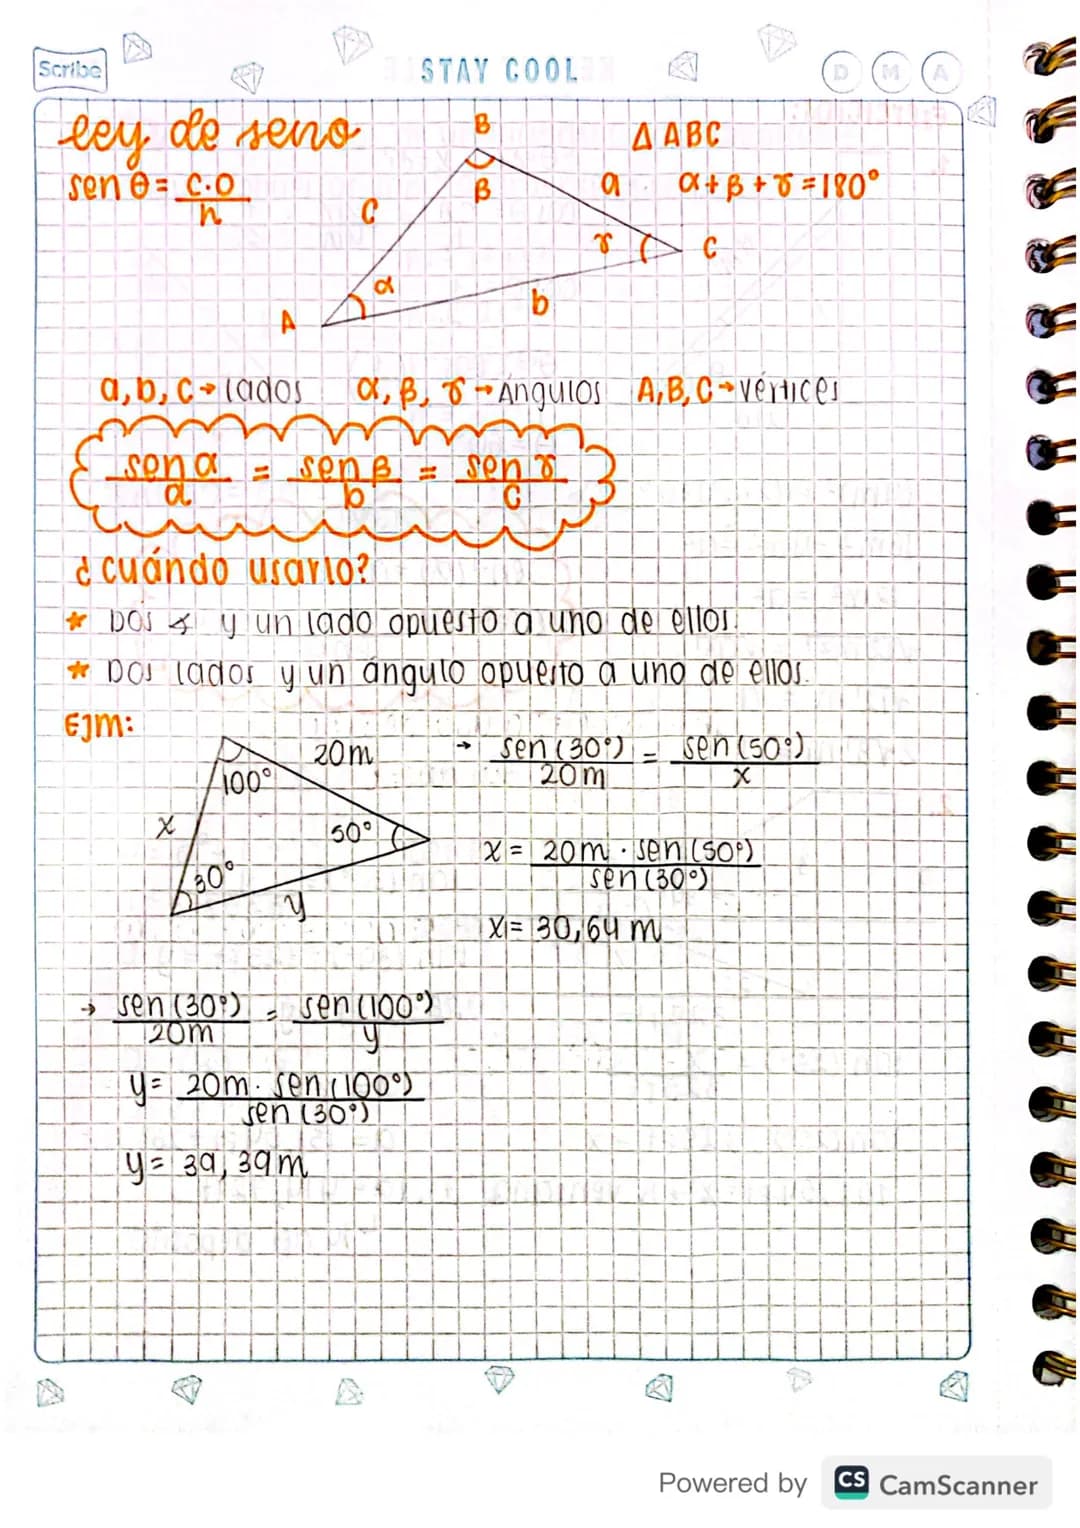 Scribe
STAY COOL
D M A
ley de seno
B
Δ ABC
sen θ = c.o
h
c
β
a
α + β + γ = 180°
γ
C
α
b
A
a, b, c → lados α, β, γ → Ángulos A, B, C → vértices
sen α = sen β = sen γ
a b c
¿cuándo usarlo?
★ Dos ∡ y un lado opuesto a uno de ellos.
★ Dos lados y un ángulo opuesto a uno de ellos.
Ejm:
20m
100°
x
50°
30°
y
→ sen (30°) = sen (50°)
20m x
x = 20m · sen (50°)
sen (30°)
x = 30,64 m
→ sen (30°) = sen (100°)
20m y
y = 20m · sen (100°)
sen (30°)
y = 39,39m
Powered by CS CamScanner